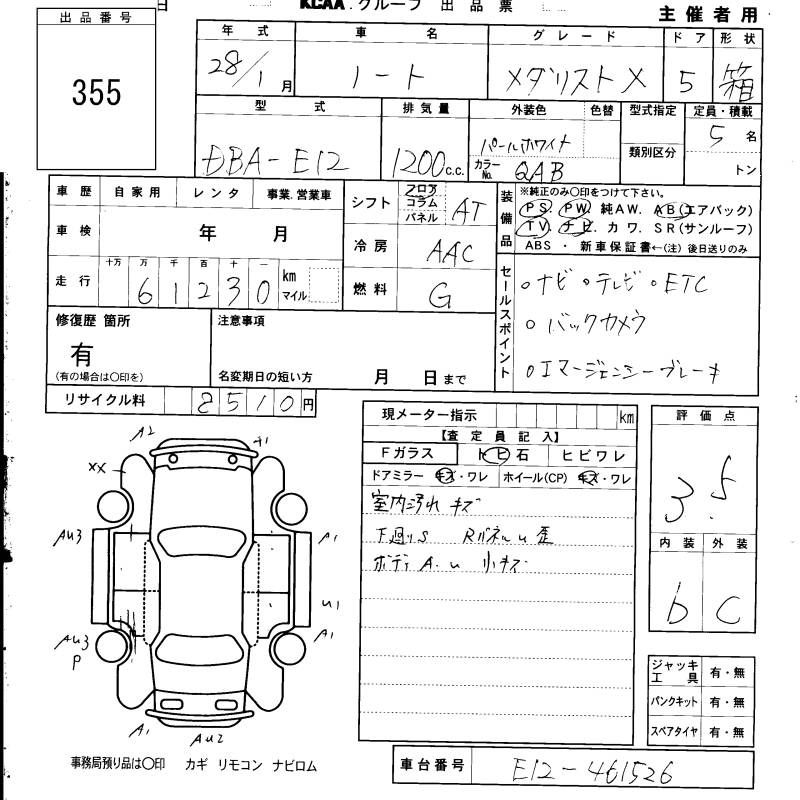 KCAA.グループ 出品票
主催者用
出品番号
355
年式 車名 グレード ドア 形状
28/1月 ノート メダリストX 5 箱
型式 排気量 外装色 色替 型式指定 定員・積載
パールホワイト 類別区分 5名
DBA-E12 1200c.c. カラーNo. QAB トン
車歴 自家用 レンタ 事業.営業車
車検 年 月
走行 十万 万 千 百 十 一
61230 km マイル
シフト フロア コラム パネル AT
冷房 AAC
燃料 G
装備品 ※純正のみ〇印をつけて下さい。
PS. PW. 純AW. AB(エアバック)
TV. ナビ. カワ. SR(サンルーフ)
ABS ・ 新車保証書←(注) 後日送りのみ
セールスポイント
○ナビ ○テレビ ○ETC
○バックカメラ
○エマージェンシーブレーキ
修復歴 箇所
有
(有の場合は〇印を)
注意事項
名変期日の短い方 月 日まで
リサイクル料 8510円
現メーター指示 km
【査定員記入】
Fガラス トビ石 ヒビワレ
ドアミラー キズ・ワレ ホイール(CP) キズ・ワレ
室内汚れ キズ
下廻りS Rパネルu歪
ボディA.u 小キズ
評価点
3.5
内装 外装
b C
ジャッキ工具 有・無
パンクキット 有・無
スペアタイヤ 有・無
A2
XX
AU3
A1
U1
AU3
P
A1
A1
AU2
事務局預り品は〇印 カギ リモコン ナビロム
車台番号 E12-461526